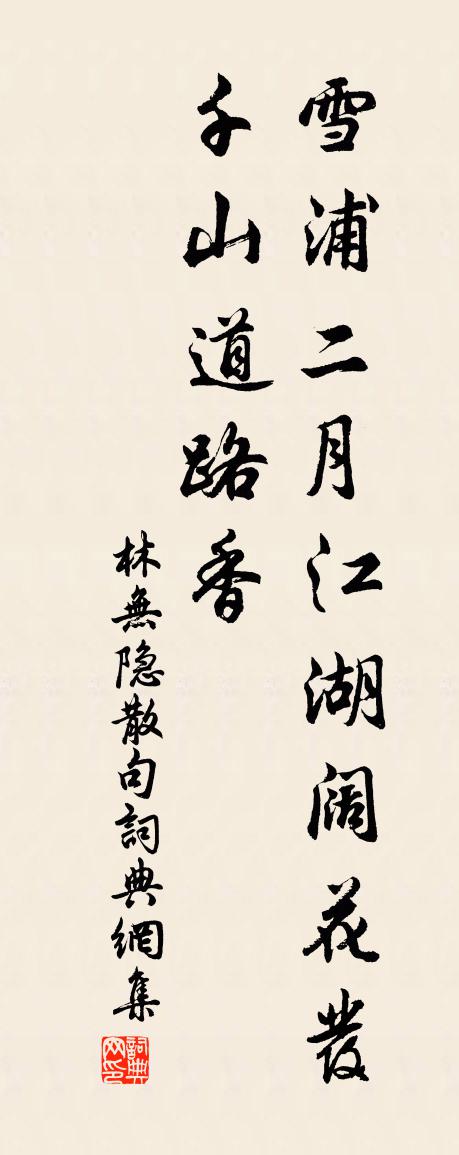 雪浦二月江湖阔花發
千山道路香
林無隐散句詞典網集
詞典网印